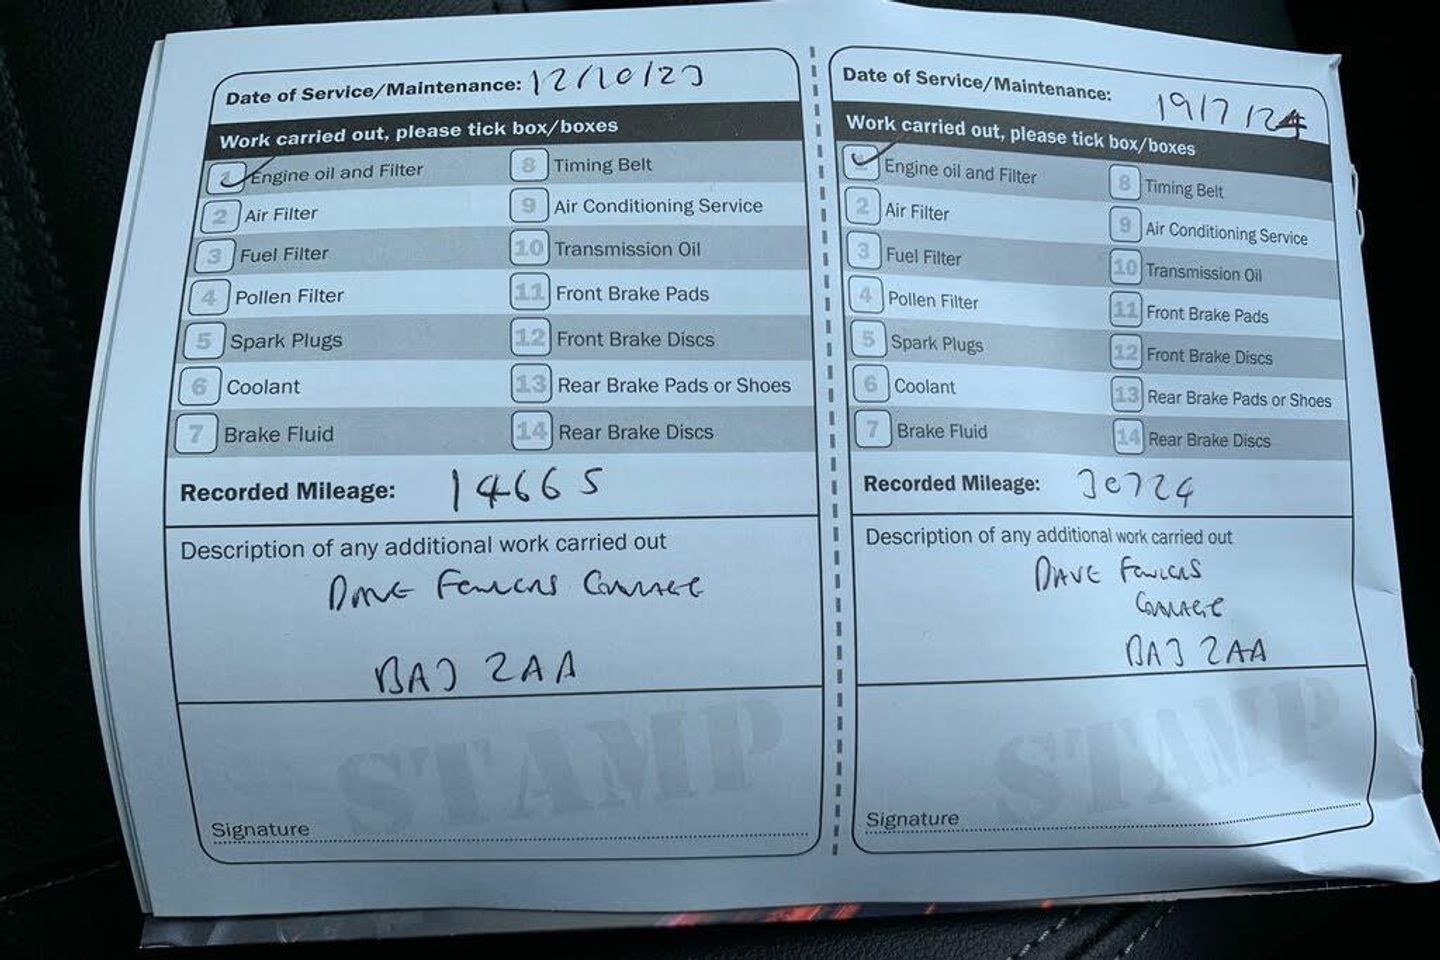 Date of Service/Maintenance: 12/10/23
Work carried out, please tick box/boxes
1 Engine oil and Filter
2 Air Filter
3 Fuel Filter
4 Pollen Filter
5 Spark Plugs
6 Coolant
7 Brake Fluid
8 Timing Belt
9 Air Conditioning Service
10 Transmission Oil
11 Front Brake Pads
12 Front Brake Discs
13 Rear Brake Pads or Shoes
14 Rear Brake Discs
Recorded Mileage: 14665
Description of any additional work carried out
DAVE FOWLERS GARAGE
BA3 2AA
STAMP
Signature
Date of Service/Maintenance: 19/7/24
Work carried out, please tick box/boxes
1 Engine oil and Filter
2 Air Filter
3 Fuel Filter
4 Pollen Filter
5 Spark Plugs
6 Coolant
7 Brake Fluid
8 Timing Belt
9 Air Conditioning Service
10 Transmission Oil
11 Front Brake Pads
12 Front Brake Discs
13 Rear Brake Pads or Shoes
14 Rear Brake Discs
Recorded Mileage: 30724
Description of any additional work carried out
DAVE FOWLERS
GARAGE
BA3 2AA
STAMP
Signature